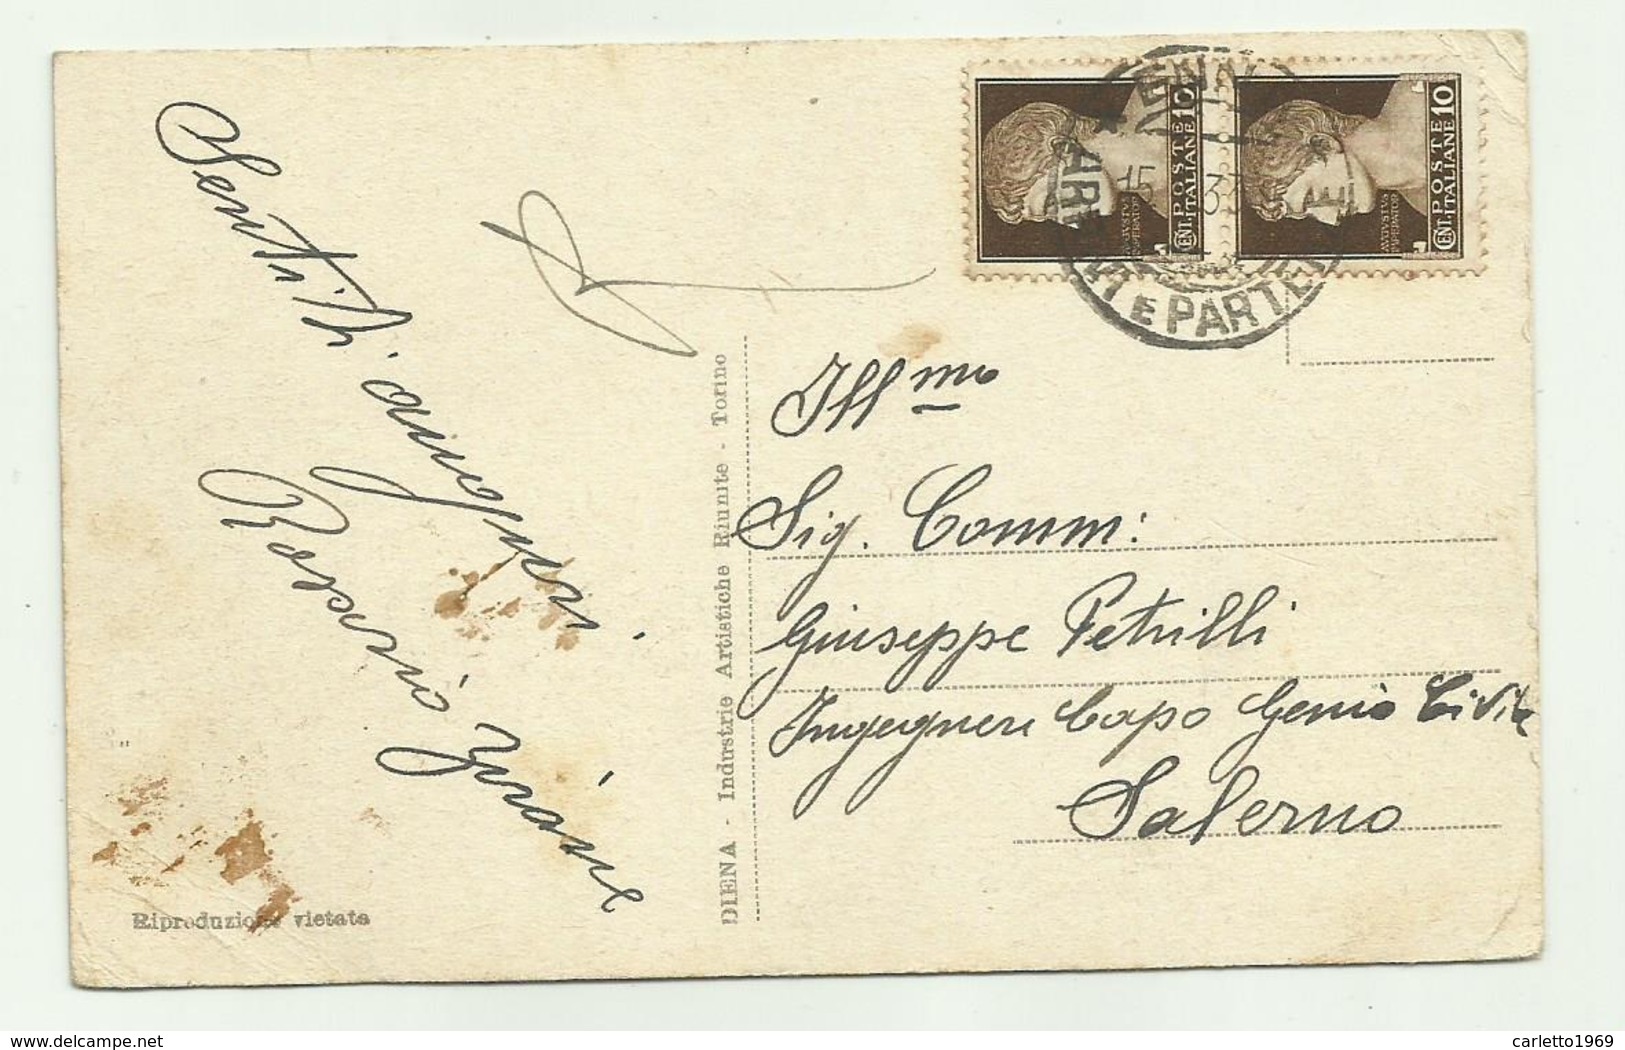 Sentiti auguri.
DIENA - Industrie Artistiche Riunite - Torino
Riproduzione vietata
POSTE ITALIANE
CENT. 10
AVGVSTVS
IMPERATOR
POSTE ITALIANE
CENT. 10
AVGVSTVS
IMPERATOR
E PARTENZE
15
Ill.mo
Sig. Comm:
Giuseppe Petrilli
Ingegnere Capo Genio Civile
Salerno
delcampe.net
carletto1969